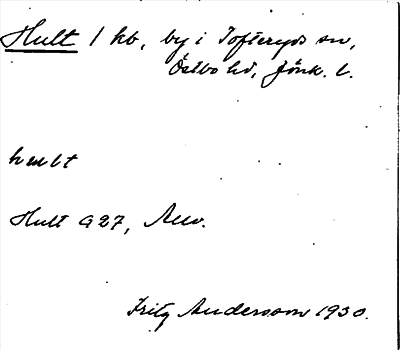 Hult 1 hb, by i Tofteryds sn,
Östbo hd, Jönk. l.
hult
Hult G 27, Auv.
Fritz Andersson 1930.